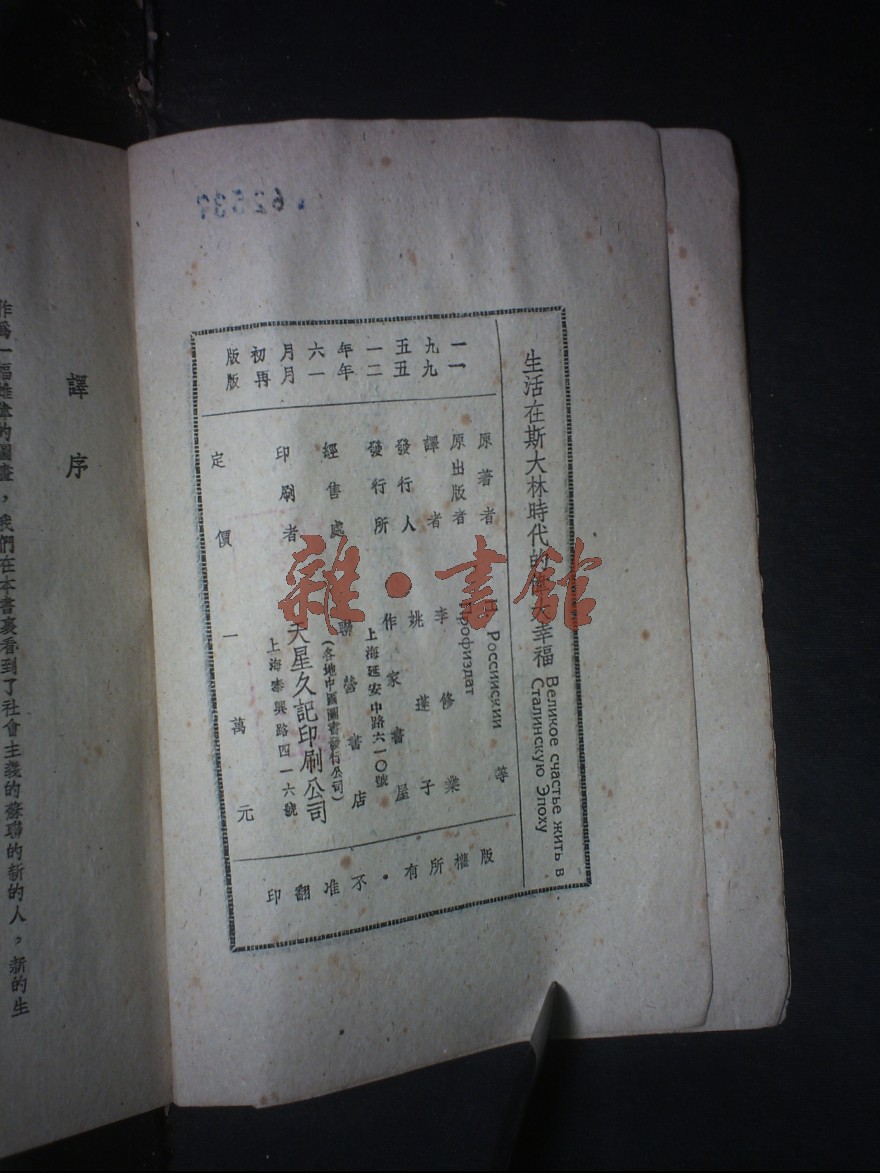 生活在斯大林時代的偉大幸福
Великое счастье жить в
Сталинскую Эпоху
一九五一年六月初版
一九五二年一月再版
原著者 Российский 等
原出版者 Профиздат
譯者 李修業
發行人 姚蓬子
發行所 作家書屋
上海延安中路六一〇號
經售處 聯營書店
(各地中國圖書發行公司)
印刷者 天星久記印刷公司
上海泰興路四一六號
定價 一萬元
版權所有・不准翻印
譯序
作爲一幅雄偉的圖畫，我們在本書裏看到了社會主義的蘇聯的新的人，新的生
雜·書館